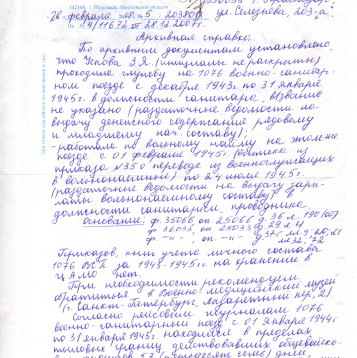 142100, г. Подольск, Московской области
26 февраля 5 203700 ул. Селезнева, 203-а
4/11672 от 28.12.2007г.
Архивная справка.
По архивным документам установлено,
что Ускова З.Я. (инициалы не раскрыты)
проходила службу на 1076 военно-санитар-
ном поезде с декабря 1943г. по 31 января
1945г. в должности санитарк, в/звание
не указано (раздаточные ведомости на
выдачу денежного содержания рядовому
и младшему нач. составу);
- работала по вольному найму на этом же
поезде с 01 февраля 1945г. (выписка из
приказа №350 переводе из военнослужащих
в вольнонаемные) по 24 июля 1945г.
(раздаточные ведомости на выдачу зарп-
латы вольнонаемному составу) в
должности санитарки, проводника.
Основание: ф. 35066, оп. 25066 д. 36 л. 190
ф. 36033, оп. 25033 д. 29 л. 4
ф -"- , оп. -"- д.
Приказов, книг учета личного состава
1076 ВСП за 1943-1945гг на хранении в
ЦАМО нет.
При необходимости рекомендуем
обратиться в Военно-медицинский музей
(г. Санкт-Петербург, Лазаретный пер, 2)
Согласно рейсовым журналам 1076
военно-санитарный поезд с 01 января 1944г
по 31 января 1945г. находился в пределах
тыловых границ действовавших общевойско-
57 (пятьдесят семь) дней.